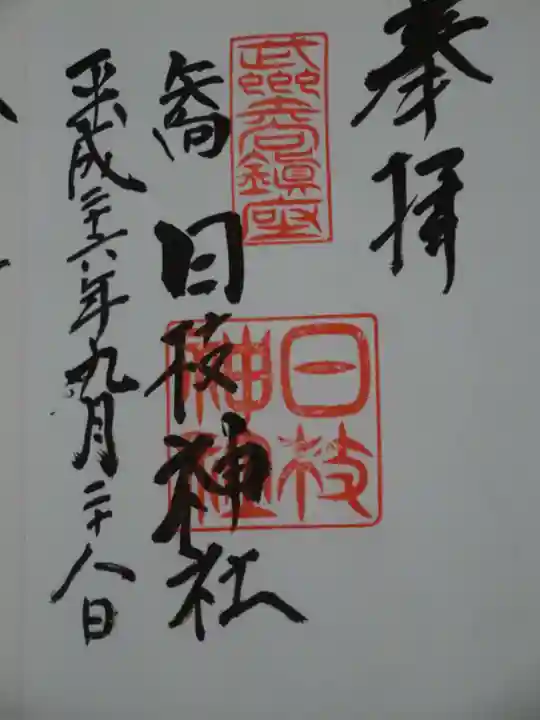 奉拝
武州矢向鎮座
矢向 日枝神社
日枝
神社
平成二十六年九月二十八日